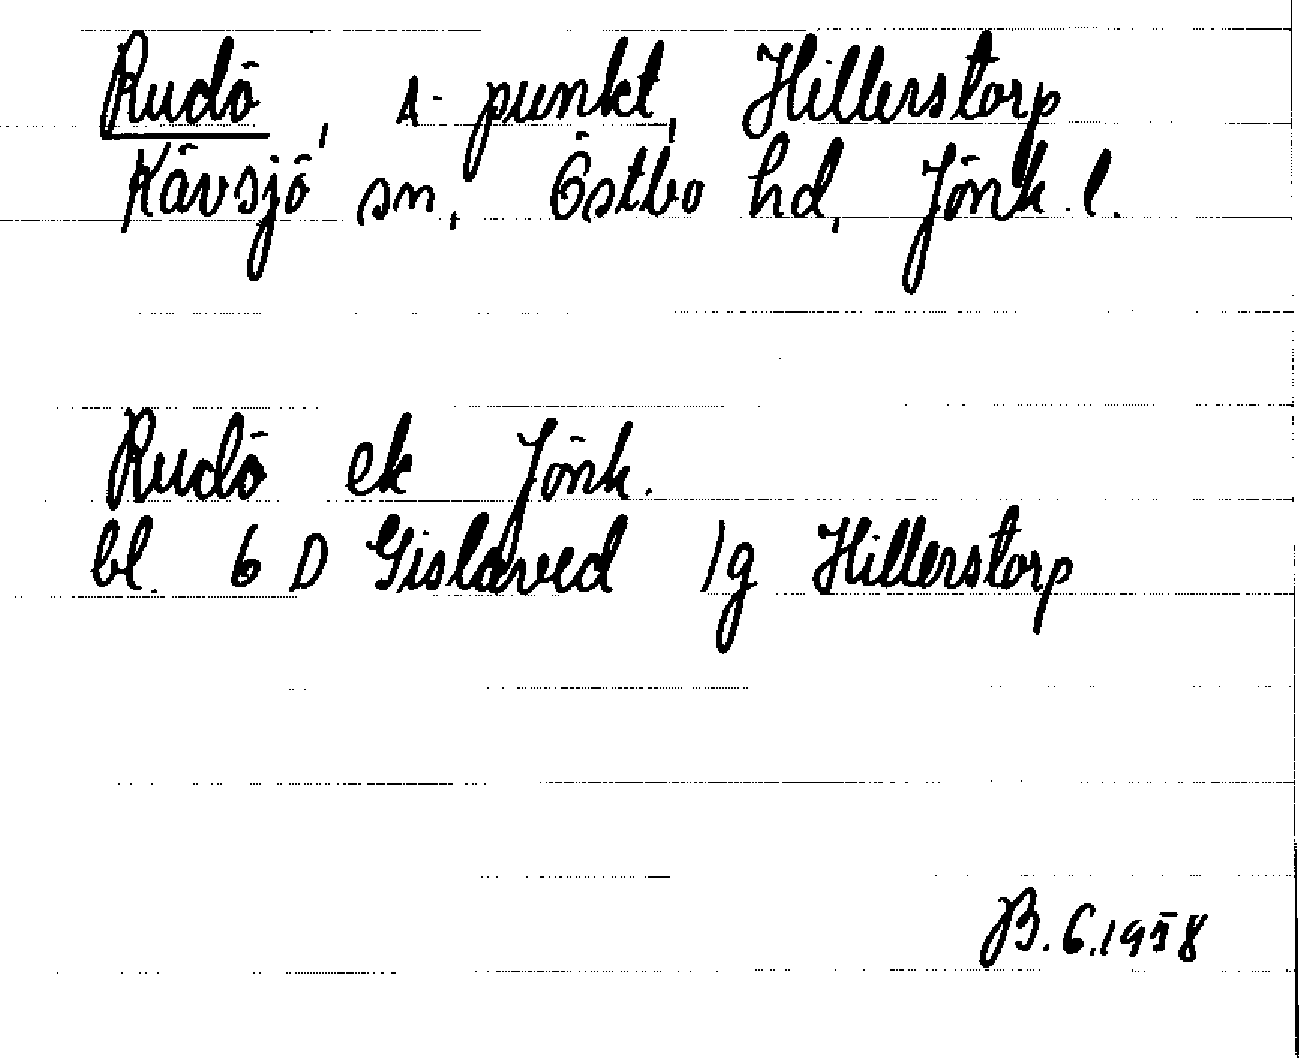 Rudö, A-punkt, Hillerstorp
Kävsjö sn, Östbo hd, Jönk. l.
Rudö ek Jönk.
bl. 6 D Gislaved 1g Hillerstorp
B. 6.1958